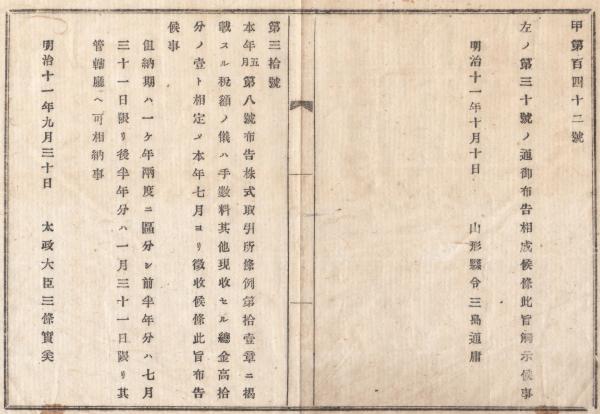 甲第百四十二號
左ノ第三十號ノ通御布告相成候條此旨觸示候事
明治十一年十月十日　山形縣令三島通庸
第三拾號
本年五月第八號布告株式取引所條例第拾壹章ニ揭
載スル稅額ノ儀ハ手數料其他現收セル總金高拾
分ノ壹ト相定メ本年七月ヨリ徵收候條此旨布告
候事
但納期ハ一ケ年兩度ニ區分シ前半年分ハ七月
三十一日限リ後半年分ハ一月三十一日限リ其
管轄廳ヘ可相納事
明治十一年九月三十日　太政大臣三條實美